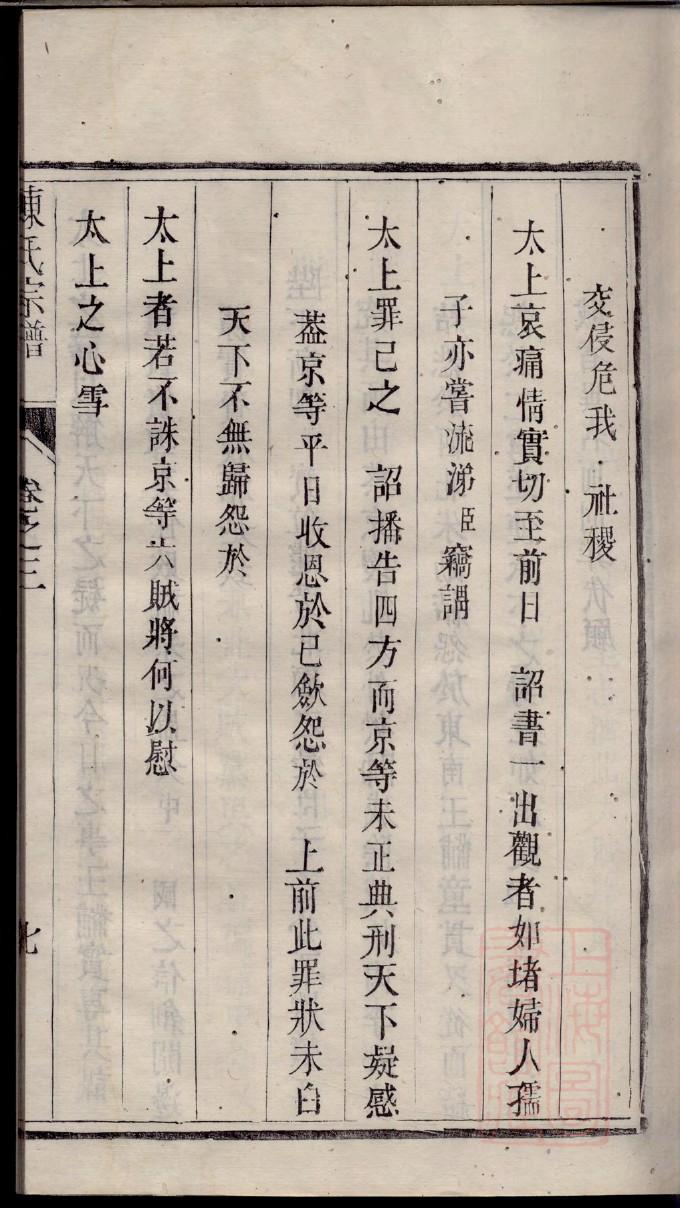 交侵危我 社稷
太上哀痛情實切至前日 詔書一出觀者如堵婦人孺
子亦嘗流涕臣竊謂
太上罪己之 詔播告四方而京等未正典刑天下疑惑
葢京等平日收恩於已歛怨於 上前此罪狀未白
天下不無歸怨於
太上者若不誅京等六賊將何以慰
太上之心雪
陳氏宗譜 卷之三